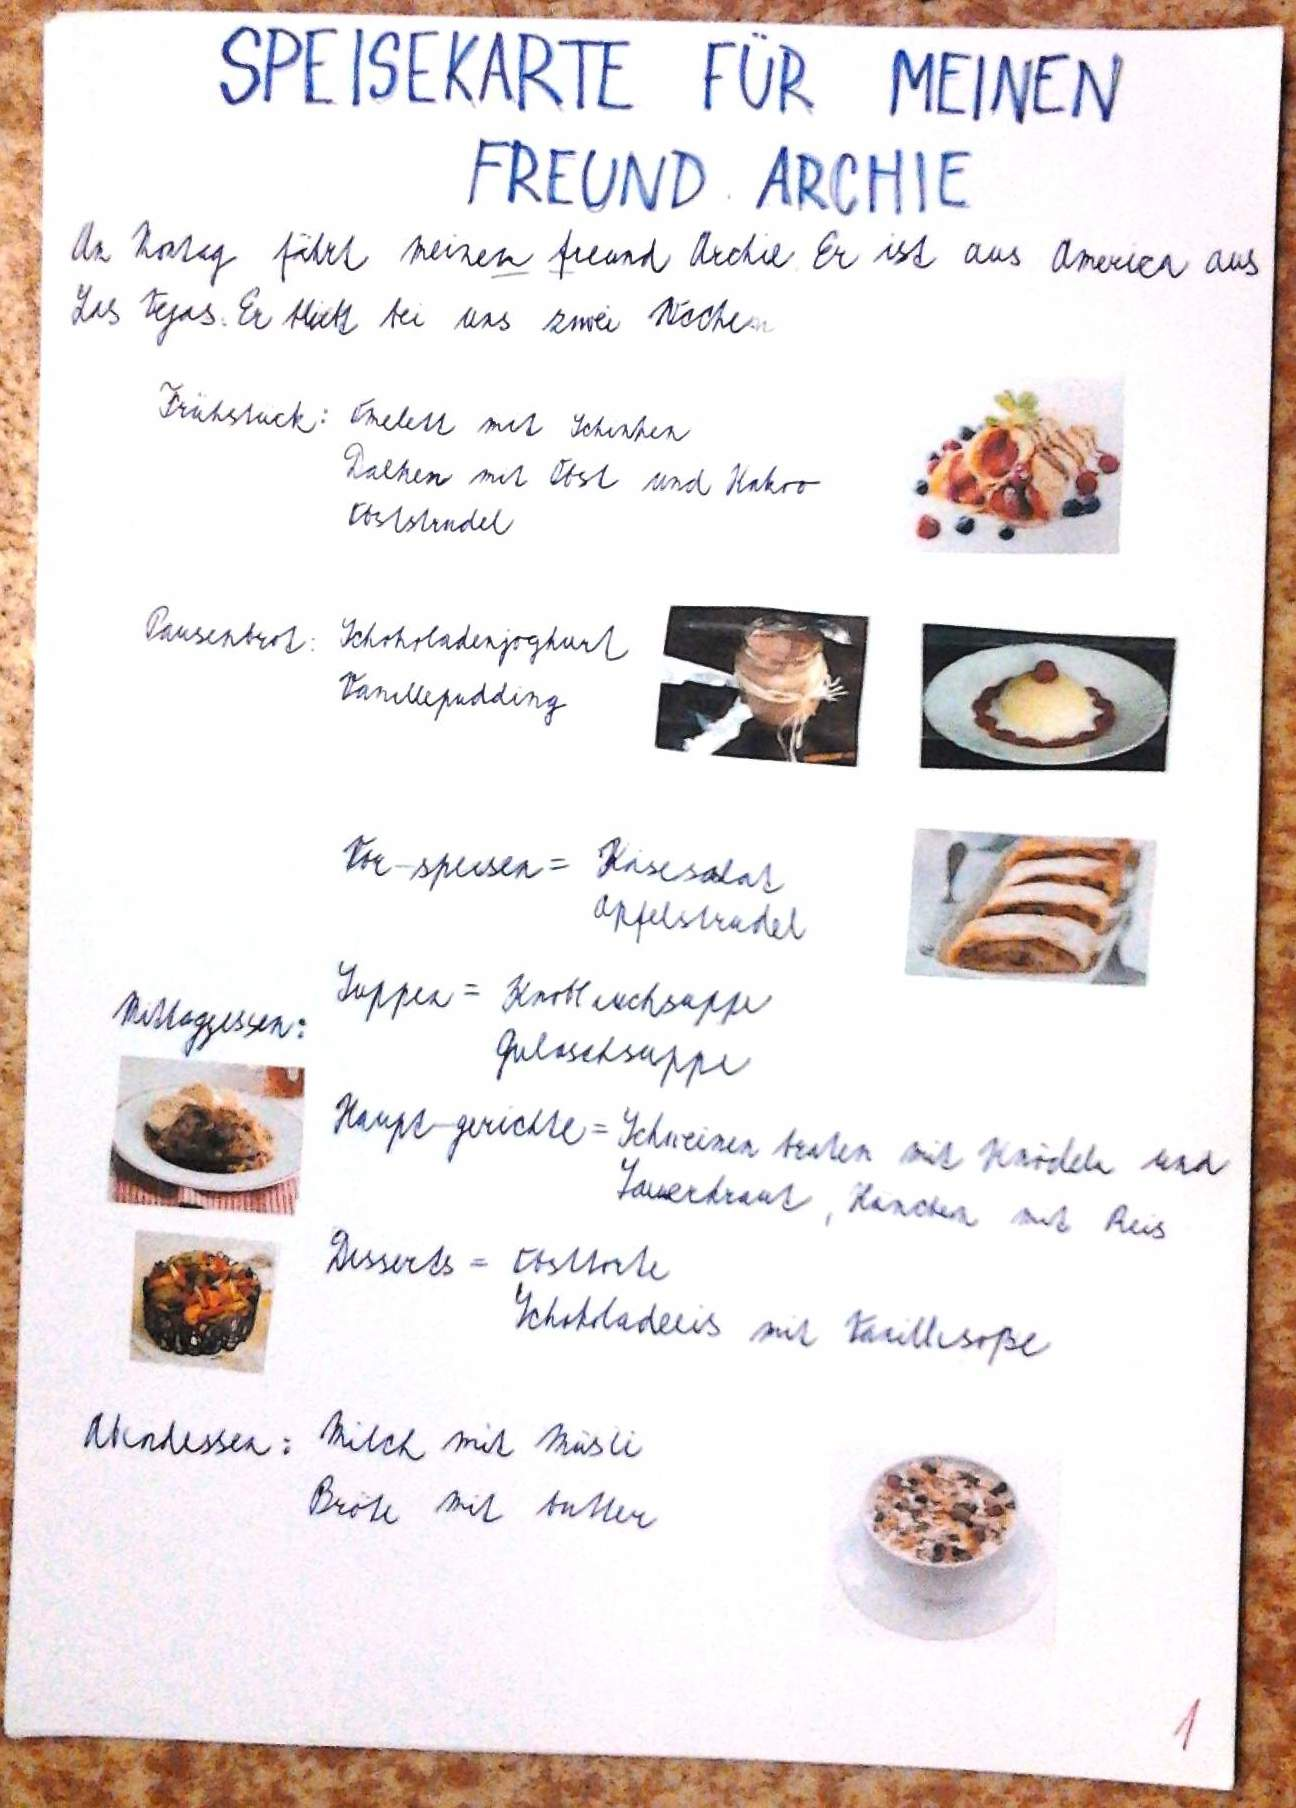 SPEISEKARTE FÜR MEINEN
FREUND ARCHIE
Am Montag fährt meinen freund Archie. Er ist aus America aus
Las Vegas. Er bleibt bei uns zwei Wochen
Frühstück: Omelett mit Schinken
Dalken mit Obst und Kakao
Obststrudel
Pausenbrot: Schokoladenjoghurt
Vanillepudding
Vor-speisen = Käsesalat
Apfelstrudel
Suppen = Knoblauchsuppe
Mittagessen:
Gulaschsuppe
Haupt-gerichte = Schweinen braten mit Knödeln und
Sauerkraut, Hänchen mit Reis
Desserts = Obsttorte
Schokoladeeis mit Vanillesoße
Abendessen: Milch mit Müsli
Bröte mit butter
1